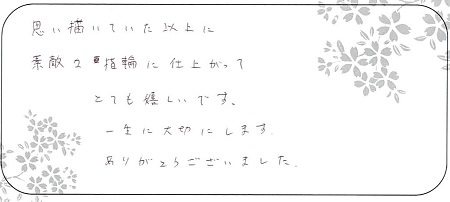 思い描いていた以上に
素敵な指輪に仕上がって
とても嬉しいです。
一生に大切にします.
ありがとうございました.